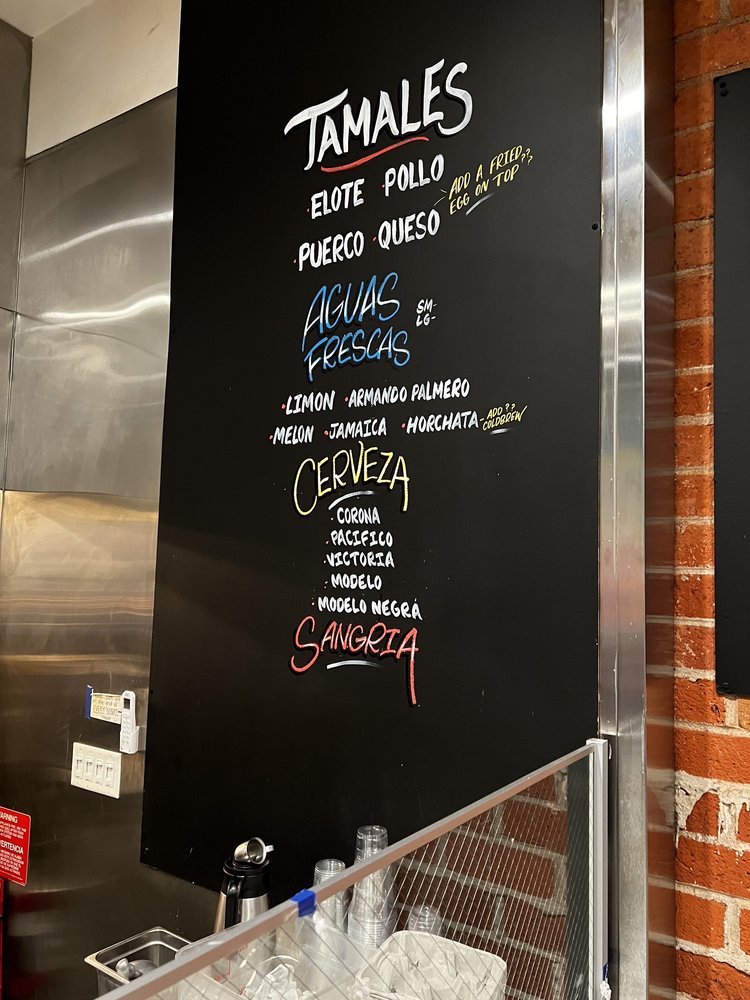 TAMALES
·ELOTE ·POLLO
·PUERCO ·QUESO
ADD A FRIED??
EGG ON TOP
AGUAS
FRESCAS
SM-
LG-
·LIMON ·ARMANDO PALMERO
·MELON ·JAMAICA ·HORCHATA-
ADD??
COLDBREW
CERVEZA
·CORONA
·PACIFICO
·VICTORIA
·MODELO
·MODELO NEGRA
SANGRIA